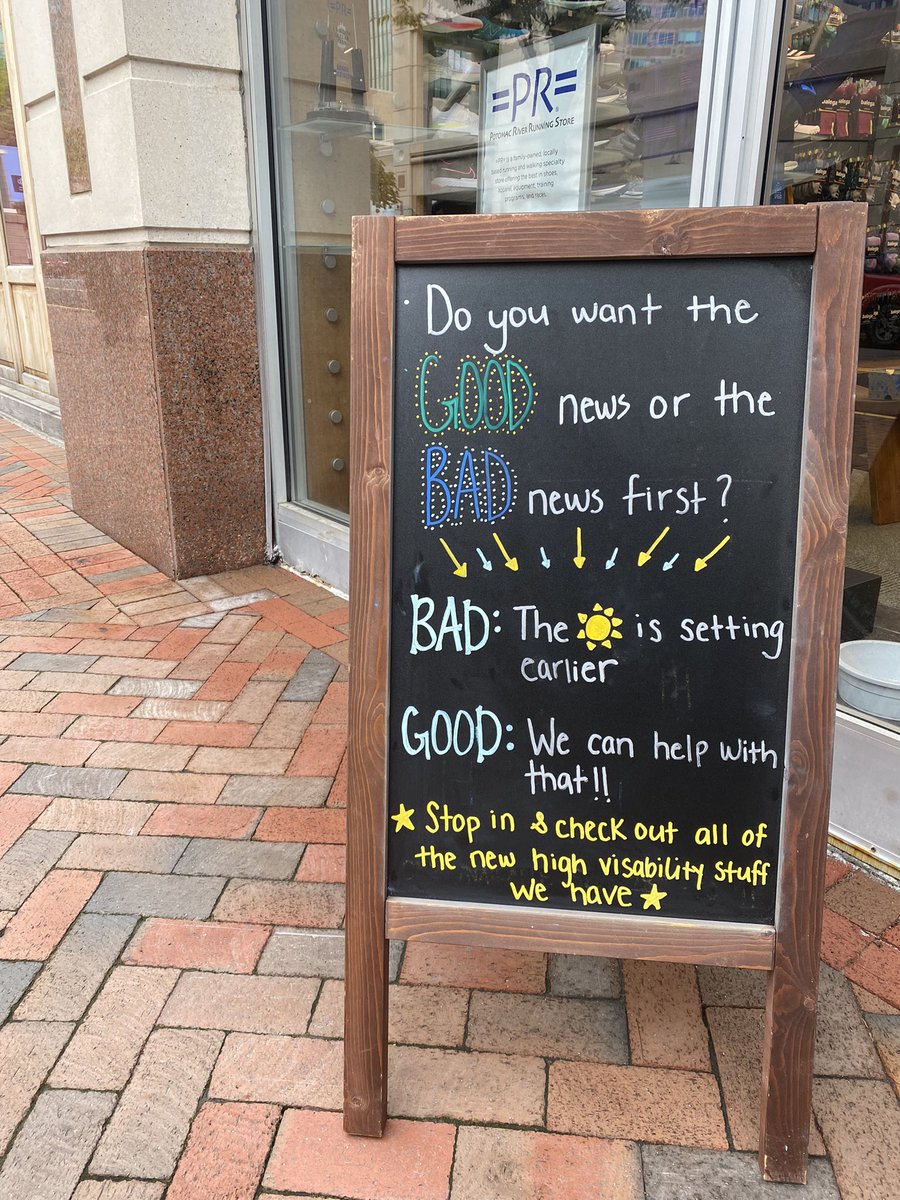 =PR=
POTOMAC RIVER RUNNING STORE
=PR= is a family-owned, locally
based running and walking specialty
store offering the best in shoes,
apparel, equipment, training
programs, and races.
Do you want the
GOOD news or the
BAD news first?
BAD: The is setting
earlier
GOOD: We can help with
that!!
Stop in & check out all of
the new high visability stuff
we have
balega
balega